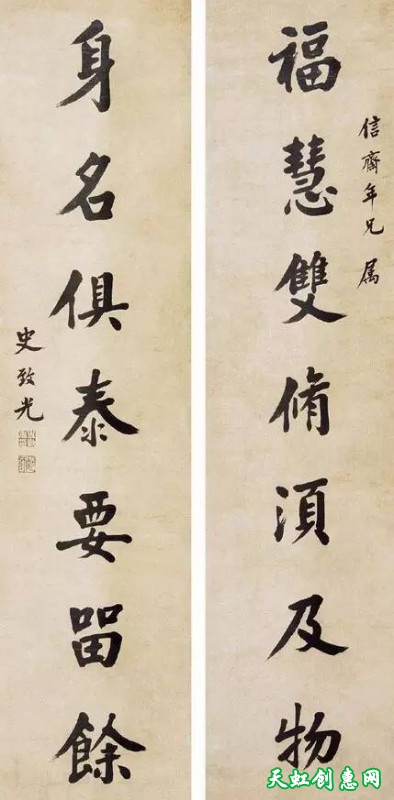 信齋年兄属
福慧雙脩湏及物
身名俱泰要留餘
史致光
天虹创惠网